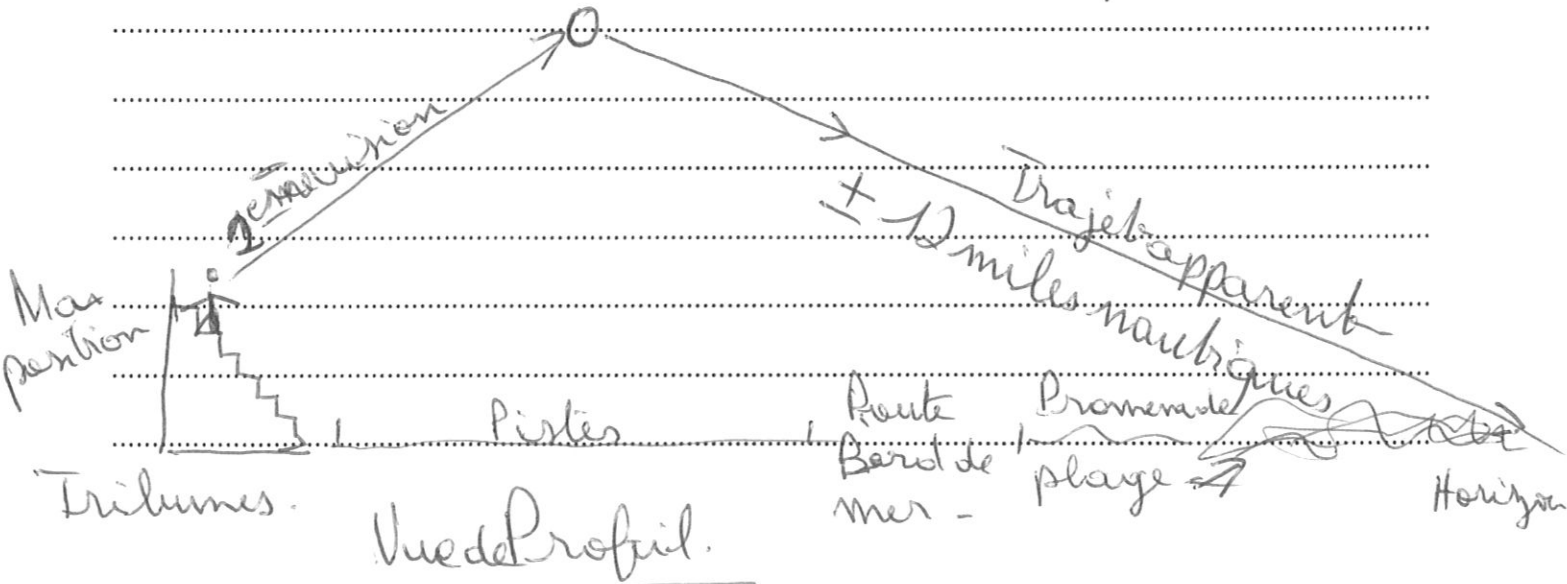 O
1ère vision
Trajet apparent
± 12 miles nautiques
Ma position
Pistes
Route Bord de mer -
Promenade
plage
Horizon
Tribunes.
Vue de Profil.